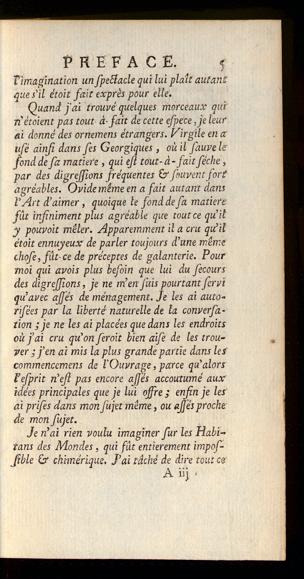 PREFACE. 5
l'imagination un spectacle qui lui plaît autant
que s'il étoit fait exprès pour elle.
Quand j'ai trouvé quelques morceaux qui
n'étoient pas tout-à-fait de cette espece, je leur
ai donné des ornemens étrangers. Virgile en a
usé ainsi dans ses Georgiques, où il sauve le
fond de sa matiere, qui est tout-à-fait séche,
par des digressions fréquentes & souvent fort
agréables. Ovide même en a fait autant dans
l'Art d'aimer, quoique le fond de sa matiere
fût infiniment plus agréable que tout ce qu'il
y pouvoit mêler. Apparemment il a cru qu'il
étoit ennuyeux de parler toujours d'une même
chose, fût-ce de préceptes de galanterie. Pour
moi qui avois plus besoin que lui du secours
des digressions, je ne m'en suis pourtant servi
qu'avec assés de ménagement. Je les ai auto-
risées par la liberté naturelle de la conversa-
tion ; je ne les ai placées que dans les endroits
où j'ai cru qu'on seroit bien aise de les trou-
ver ; j'en ai mis la plus grande partie dans les
commencemens de l'Ouvrage, parce qu'alors
l'esprit n'est pas encore assés accoutumé aux
idées principales que je lui offre ; enfin je les
ai prises dans mon sujet même, ou assés proche
de mon sujet.
Je n'ai rien voulu imaginer sur les Habi-
tans des Mondes, qui fût entierement impos-
sible & chimérique. J'ai tâché de dire tout ce
A iij